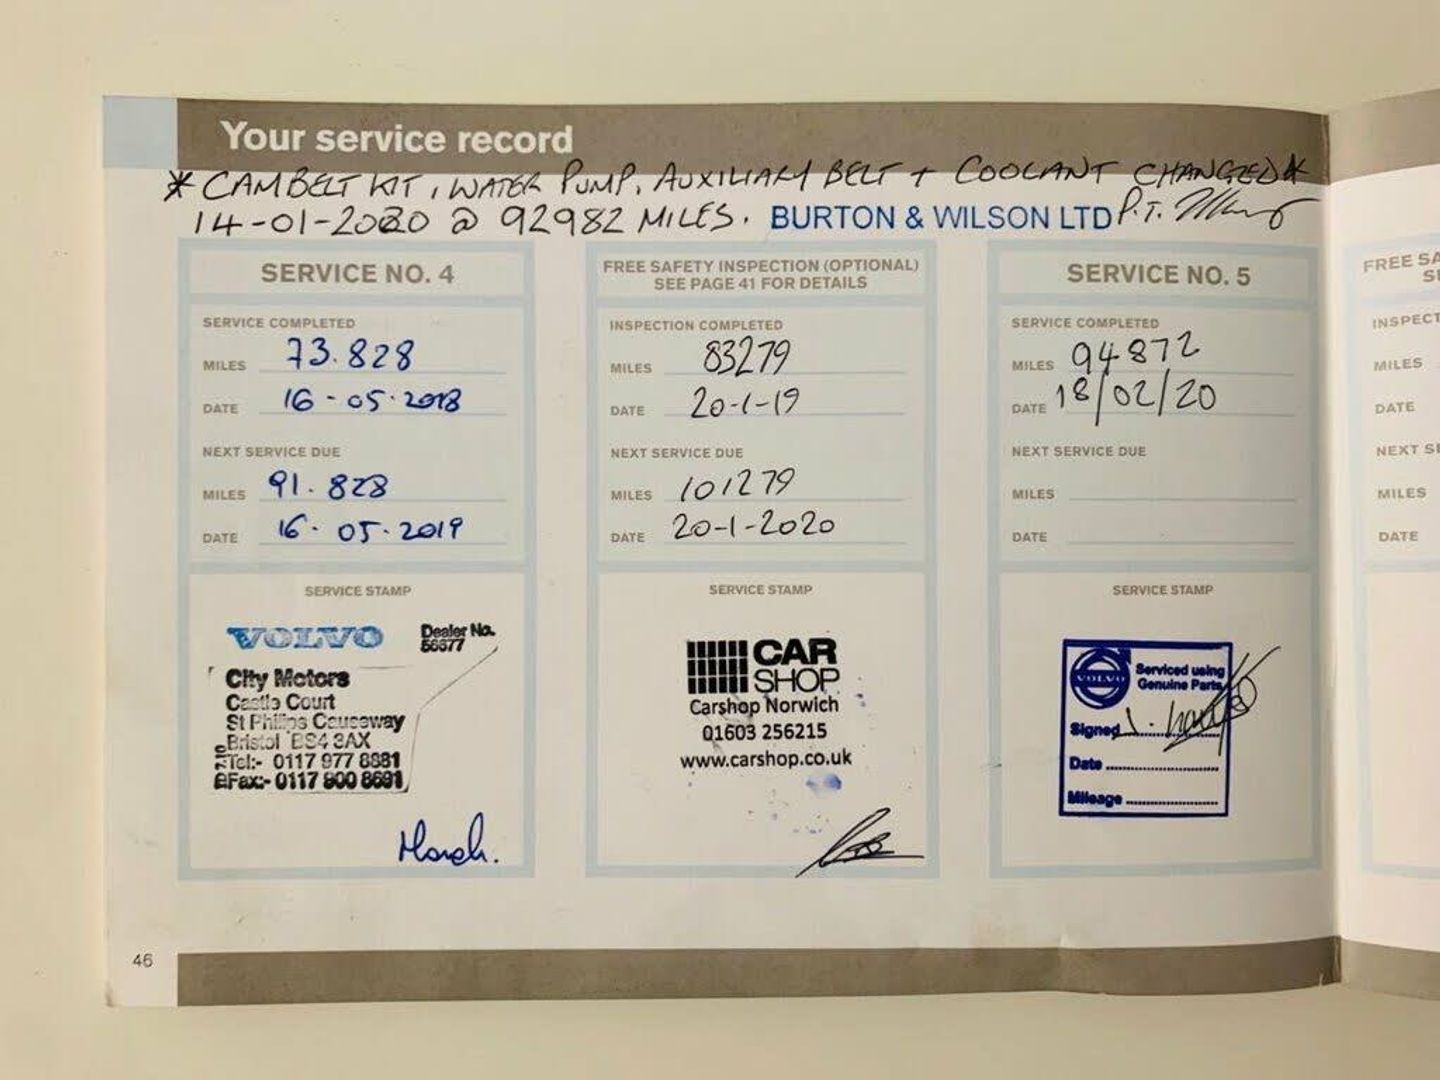 Your service record
* CAMBELT KIT, WATER PUMP, AUXILIARY BELT + COOLANT CHANGED *
14-01-2020 @ 92982 MILES. BURTON & WILSON LTD P.T.
SERVICE NO. 4
SERVICE COMPLETED
MILES 73.828
DATE 16-05-2018
NEXT SERVICE DUE
MILES 91.828
DATE 16-05-2019
SERVICE STAMP
VOLVO Dealer No.
56677
City Motors
Castle Court
St Philips Causeway
Bristol BS4 3AX
Tel:- 0117 977 8881
Fax:- 0117 900 8691
FREE SAFETY INSPECTION (OPTIONAL)
SEE PAGE 41 FOR DETAILS
INSPECTION COMPLETED
MILES 83279
DATE 20-1-19
NEXT SERVICE DUE
MILES 101279
DATE 20-1-2020
SERVICE STAMP
CAR
SHOP
Carshop Norwich
01603 256215
www.carshop.co.uk
SERVICE NO. 5
SERVICE COMPLETED
MILES 94872
DATE 18/02/20
NEXT SERVICE DUE
MILES
DATE
SERVICE STAMP
VOLVO
Serviced using
Genuine Parts
Signed
Date
Mileage
FREE SA
INSPECT
MILES
DATE
NEXT SE
MILES
DATE
46